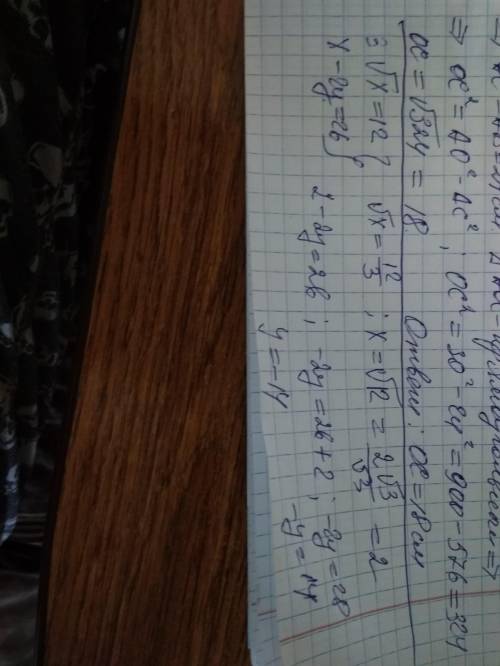 ⇒ OC² = AO² - AC² ; OC² = 30² - 24² = 900 - 576 = 324
OC = √324 = 18 Ответ: OC = 18 см
3√x = 12 } √x = 12/3 ; x = √12 = 2√3/√3 = 2
x - 2y = 26 } 2 - 2y = 26 ; -2y = 26 + 2 ; -2y = 28
y = -14 -y = 14